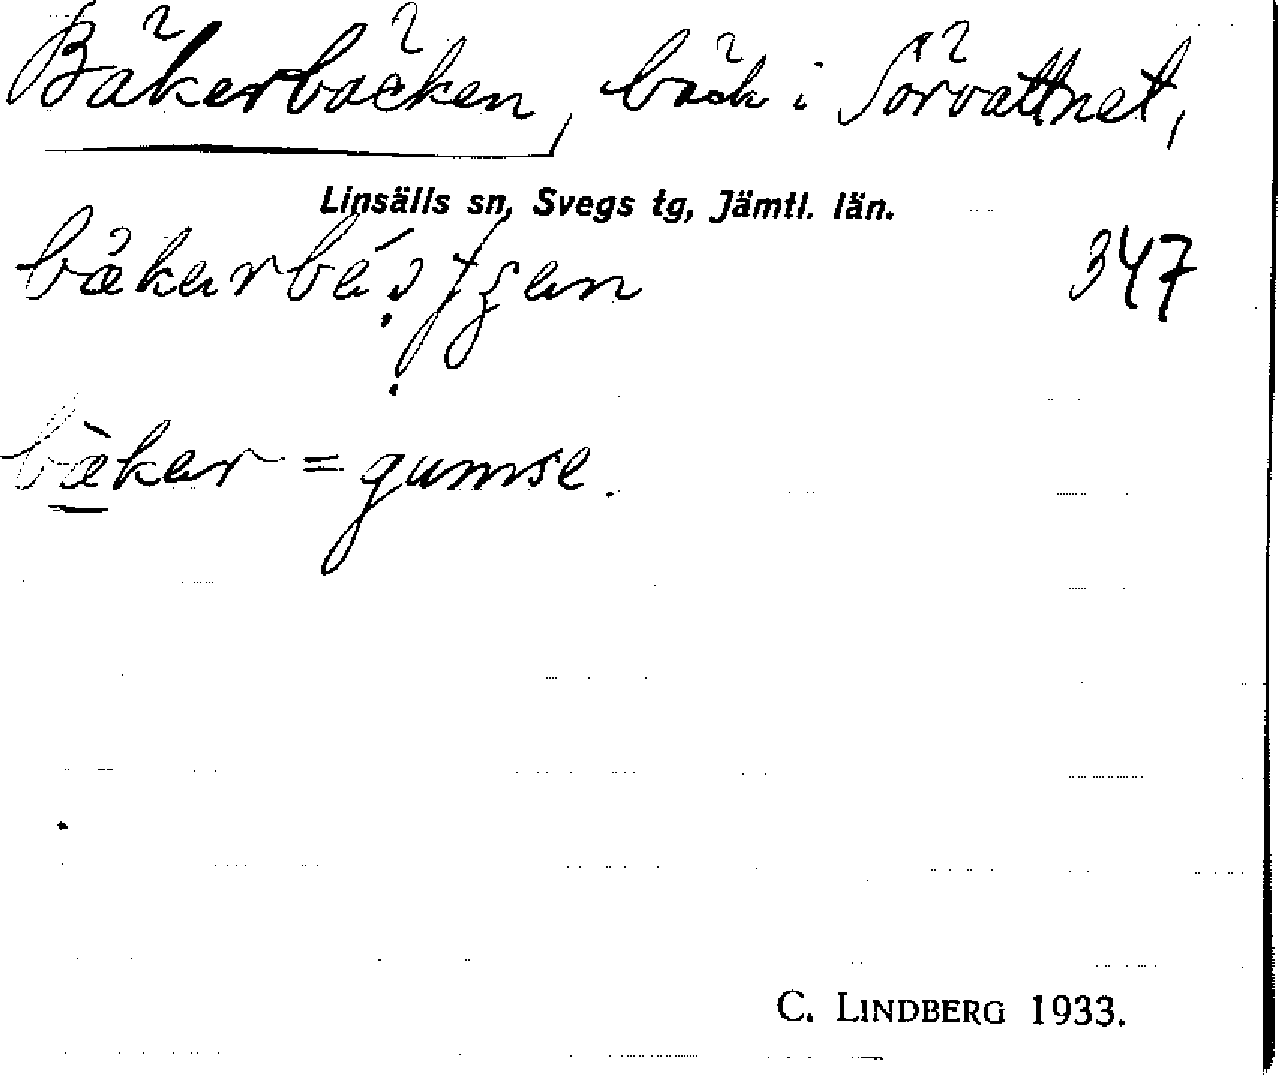 Bäkerbäcken, bäck i Sörvattnet,
Linsälls sn, Svegs tg, Jämtl. län.
347
bæker = gumse.
C. LINDBERG 1933.